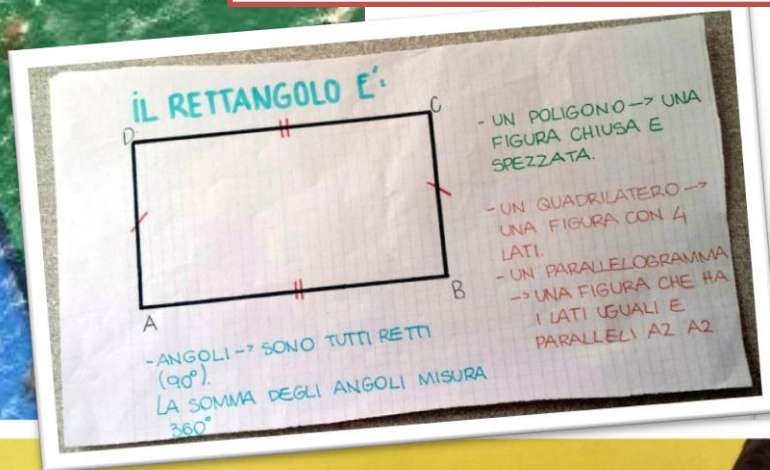 IL RETTANGOLO E':
D
C
A
B
- UN POLIGONO -> UNA
FIGURA CHIUSA E
SPEZZATA.
- UN QUADRILATERO ->
UNA FIGURA CON 4
LATI.
- UN PARALLELOGRAMMA
-> UNA FIGURA CHE HA
I LATI UGUALI E
PARALLELI A2 A2
- ANGOLI -> SONO TUTTI RETTI
(90°).
LA SOMMA DEGLI ANGOLI MISURA
360°